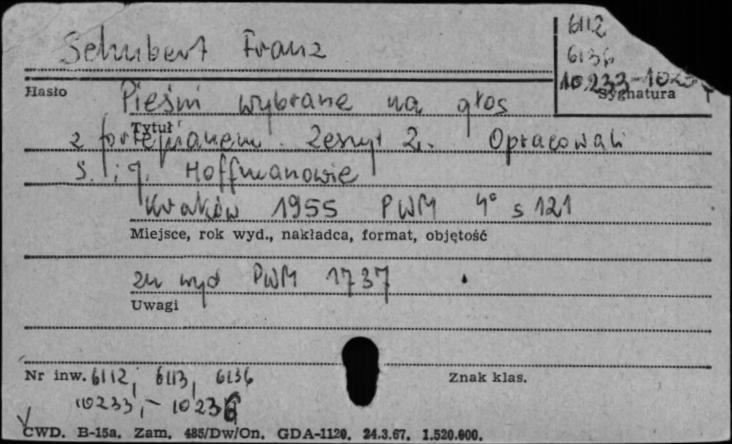 Schubert Franz
6112
6136
10233-1023
Hasło
Sygnatura
Pieśni wybrane na głos
Tytuł
z fortepianem. Zeszyt 2. Opracowali
S. i J. Hoffmanowie
Kraków 1955 PWM 4° s 121
Miejsce, rok wyd., nakładca, format, objętość
zn wyd PWM 1737
Uwagi
Nr inw. 6112, 6113, 6136
Znak klas.
10233,-10236
CWD. B-15a. Zam. 485/Dw/On. GDA-1120. 24.3.67. 1.520.000.